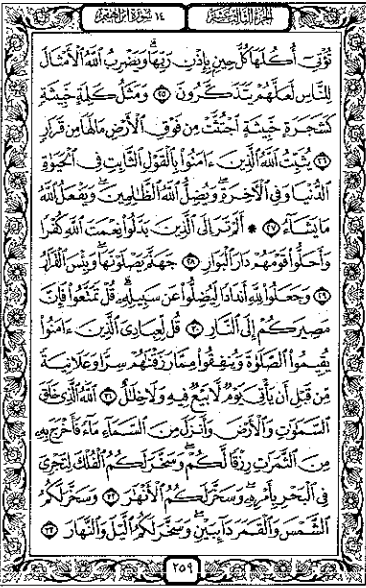 الجزء الثالث عشر ١٤ سورة إبراهيم
تُؤْتِىٓ أُكُلَهَا كُلَّ حِينٍۭ بِإِذْنِ رَبِّهَا ۗ وَيَضْرِبُ ٱللَّهُ ٱلْأَمْثَالَ
لِلنَّاسِ لَعَلَّهُمْ يَتَذَكَّرُونَ ٢٥ وَمَثَلُ كَلِمَةٍ خَبِيثَةٍ
كَشَجَرَةٍ خَبِيثَةٍ ٱجْتُثَّتْ مِن فَوْقِ ٱلْأَرْضِ مَا لَهَا مِن قَرَارٍ
٢٦ يُثَبِّتُ ٱللَّهُ ٱلَّذِينَ ءَامَنُوا۟ بِٱلْقَوْلِ ٱلثَّابِتِ فِى ٱلْحَيَوٰةِ
ٱلدُّنْيَا وَفِى ٱلْءَاخِرَةِ ۖ وَيُضِلُّ ٱللَّهُ ٱلظَّٰلِمِينَ ۚ وَيَفْعَلُ ٱللَّهُ
مَا يَشَآءُ ٢٧ ۞ أَلَمْ تَرَ إِلَى ٱلَّذِينَ بَدَّلُوا۟ نِعْمَتَ ٱللَّهِ كُفْرًا
وَأَحَلُّوا۟ قَوْمَهُمْ دَارَ ٱلْبَوَارِ ٢٨ جَهَنَّمَ يَصْلَوْنَهَا ۖ وَبِئْسَ ٱلْقَرَارُ
٢٩ وَجَعَلُوا۟ لِلَّهِ أَندَادًا لِّيُضِلُّوا۟ عَن سَبِيلِهِۦ ۗ قُلْ تَمَتَّعُوا۟ فَإِنَّ
مَصِيرَكُمْ إِلَى ٱلنَّارِ ٣٠ قُل لِّعِبَادِىَ ٱلَّذِينَ ءَامَنُوا۟
يُقِيمُوا۟ ٱلصَّلَوٰةَ وَيُنفِقُوا۟ مِمَّا رَزَقْنَٰهُمْ سِرًّا وَعَلَانِيَةً
مِّن قَبْلِ أَن يَأْتِىَ يَوْمٌ لَّا بَيْعٌ فِيهِ وَلَا خِلَٰلٌ ٣١ ٱللَّهُ ٱلَّذِى خَلَقَ
ٱلسَّمَٰوَٰتِ وَٱلْأَرْضَ وَأَنزَلَ مِنَ ٱلسَّمَآءِ مَآءً فَأَخْرَجَ بِهِۦ
مِنَ ٱلثَّمَرَٰتِ رِزْقًا لَّكُمْ ۖ وَسَخَّرَ لَكُمُ ٱلْفُلْكَ لِتَجْرِىَ
فِى ٱلْبَحْرِ بِأَمْرِهِۦ ۖ وَسَخَّرَ لَكُمُ ٱلْأَنْهَٰرَ ٣٢ وَسَخَّرَ لَكُمُ
ٱلشَّمْسَ وَٱلْقَمَرَ دَآئِبَيْنِ ۖ وَسَخَّرَ لَكُمُ ٱلَّيْلَ وَٱلنَّهَارَ ٣٣
٢٥٩